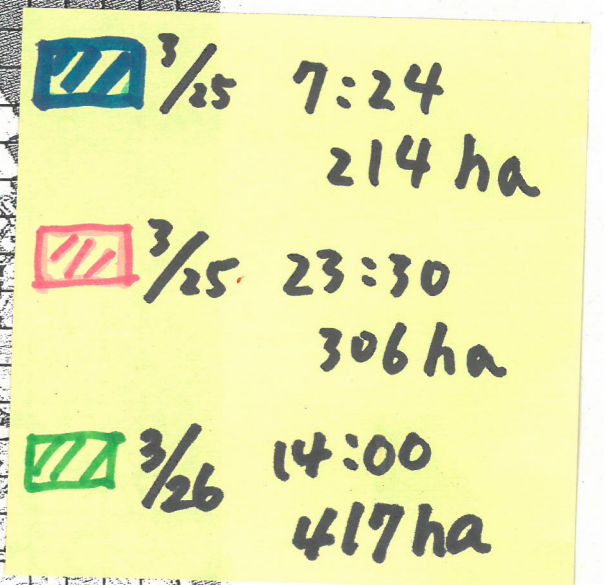 3/25 7:24
214 ha
3/25 23:30
306 ha
3/26 14:00
417 ha